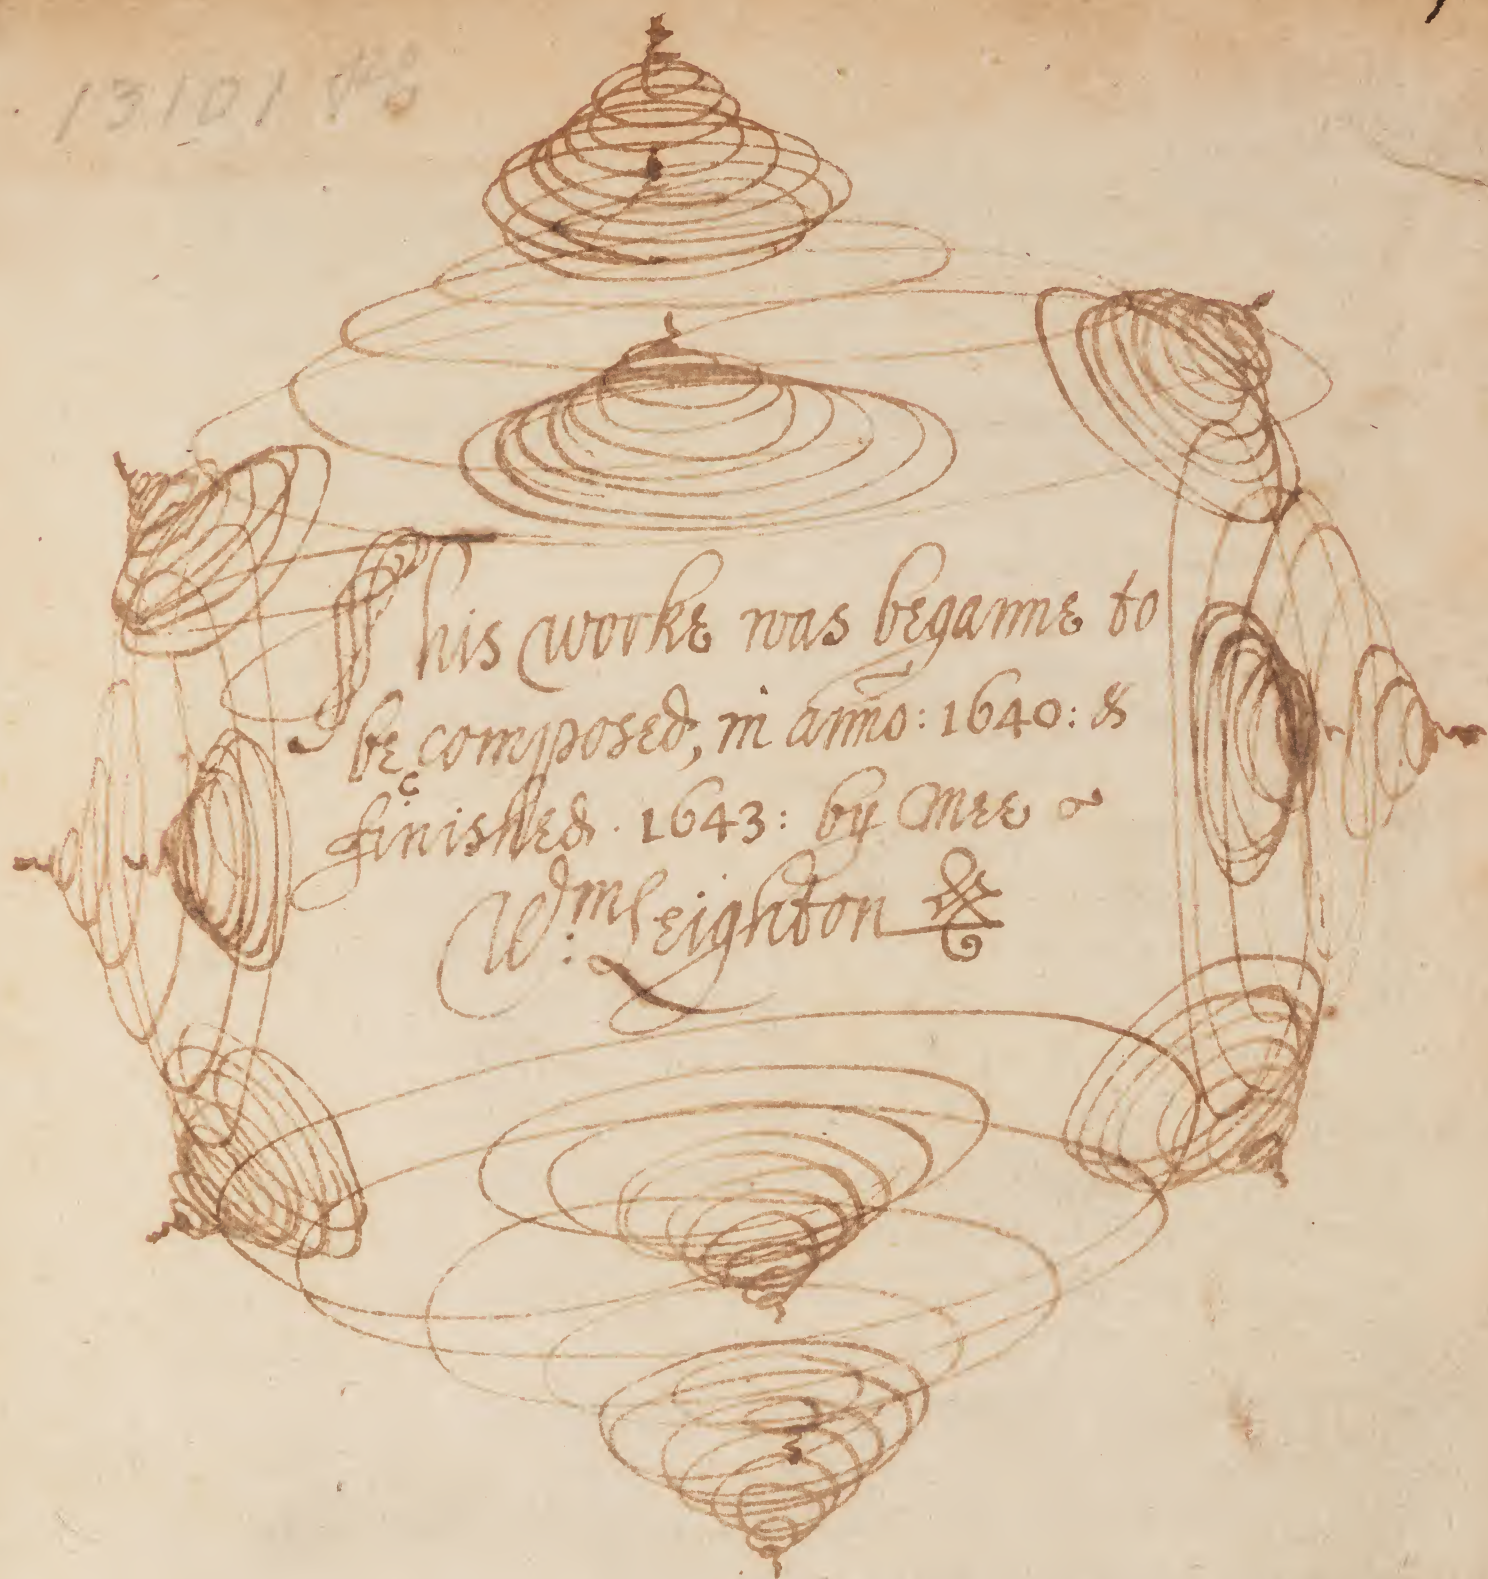 13101
This worke was beganne to
be composed, in anno: 1640: &
finished. 1643: by mee
Wm: Leighton